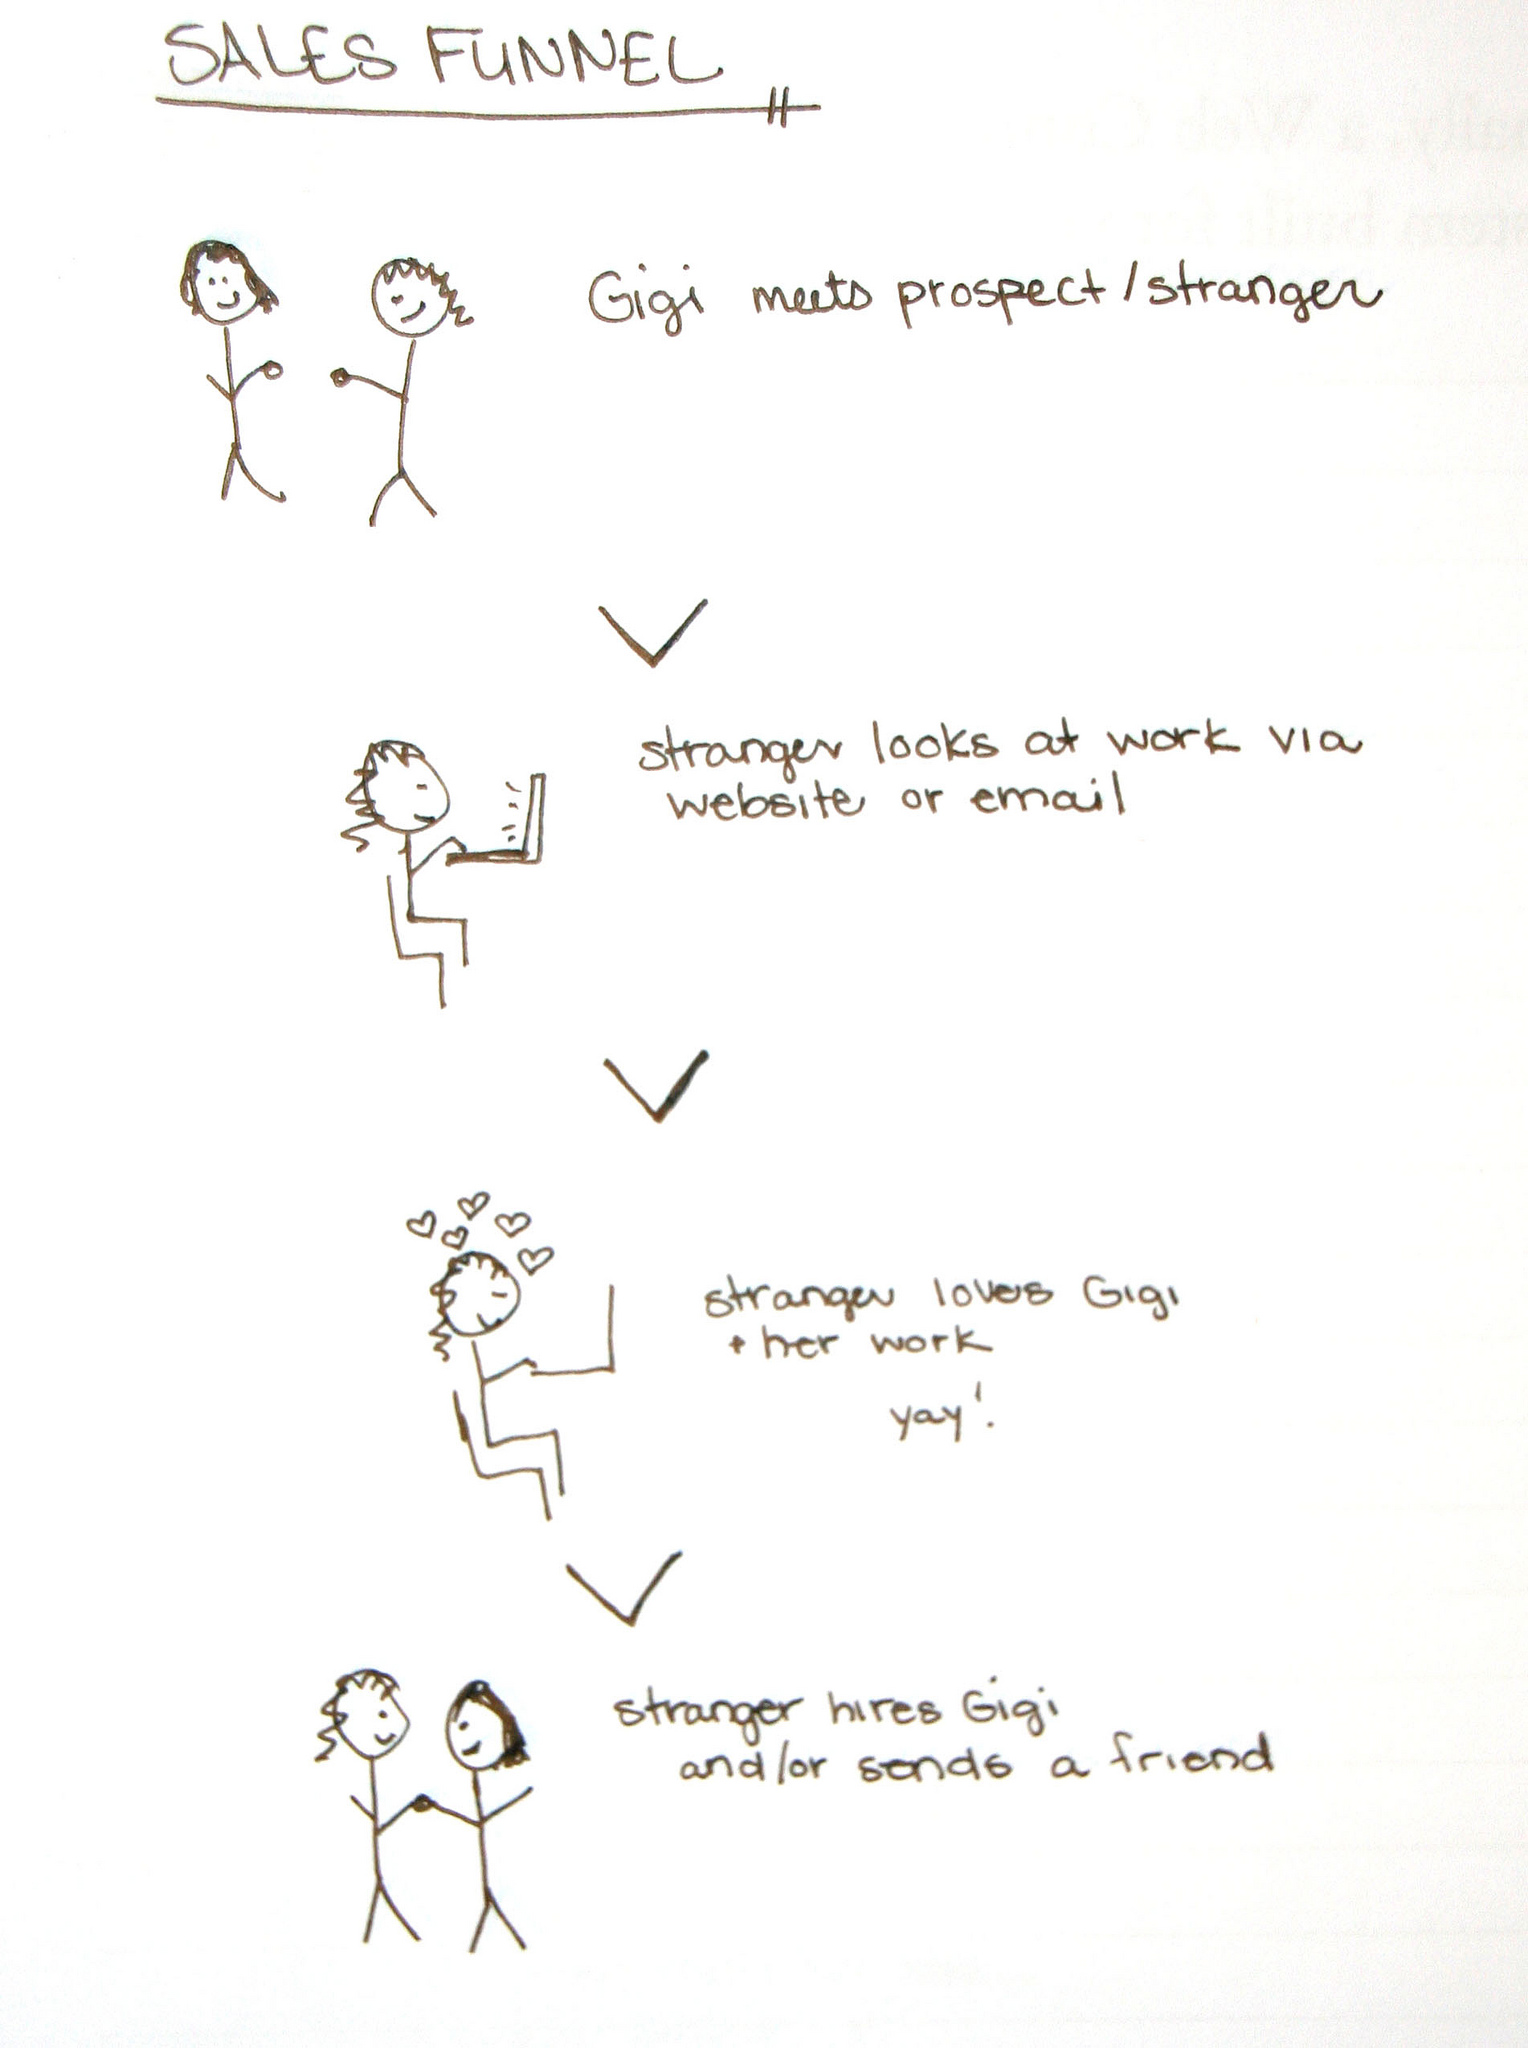 SALES FUNNEL
Gigi meets prospect/stranger
stranger looks at work via
website or email
stranger loves Gigi
+ her work
yay!
stranger hires Gigi
and/or sends a friend